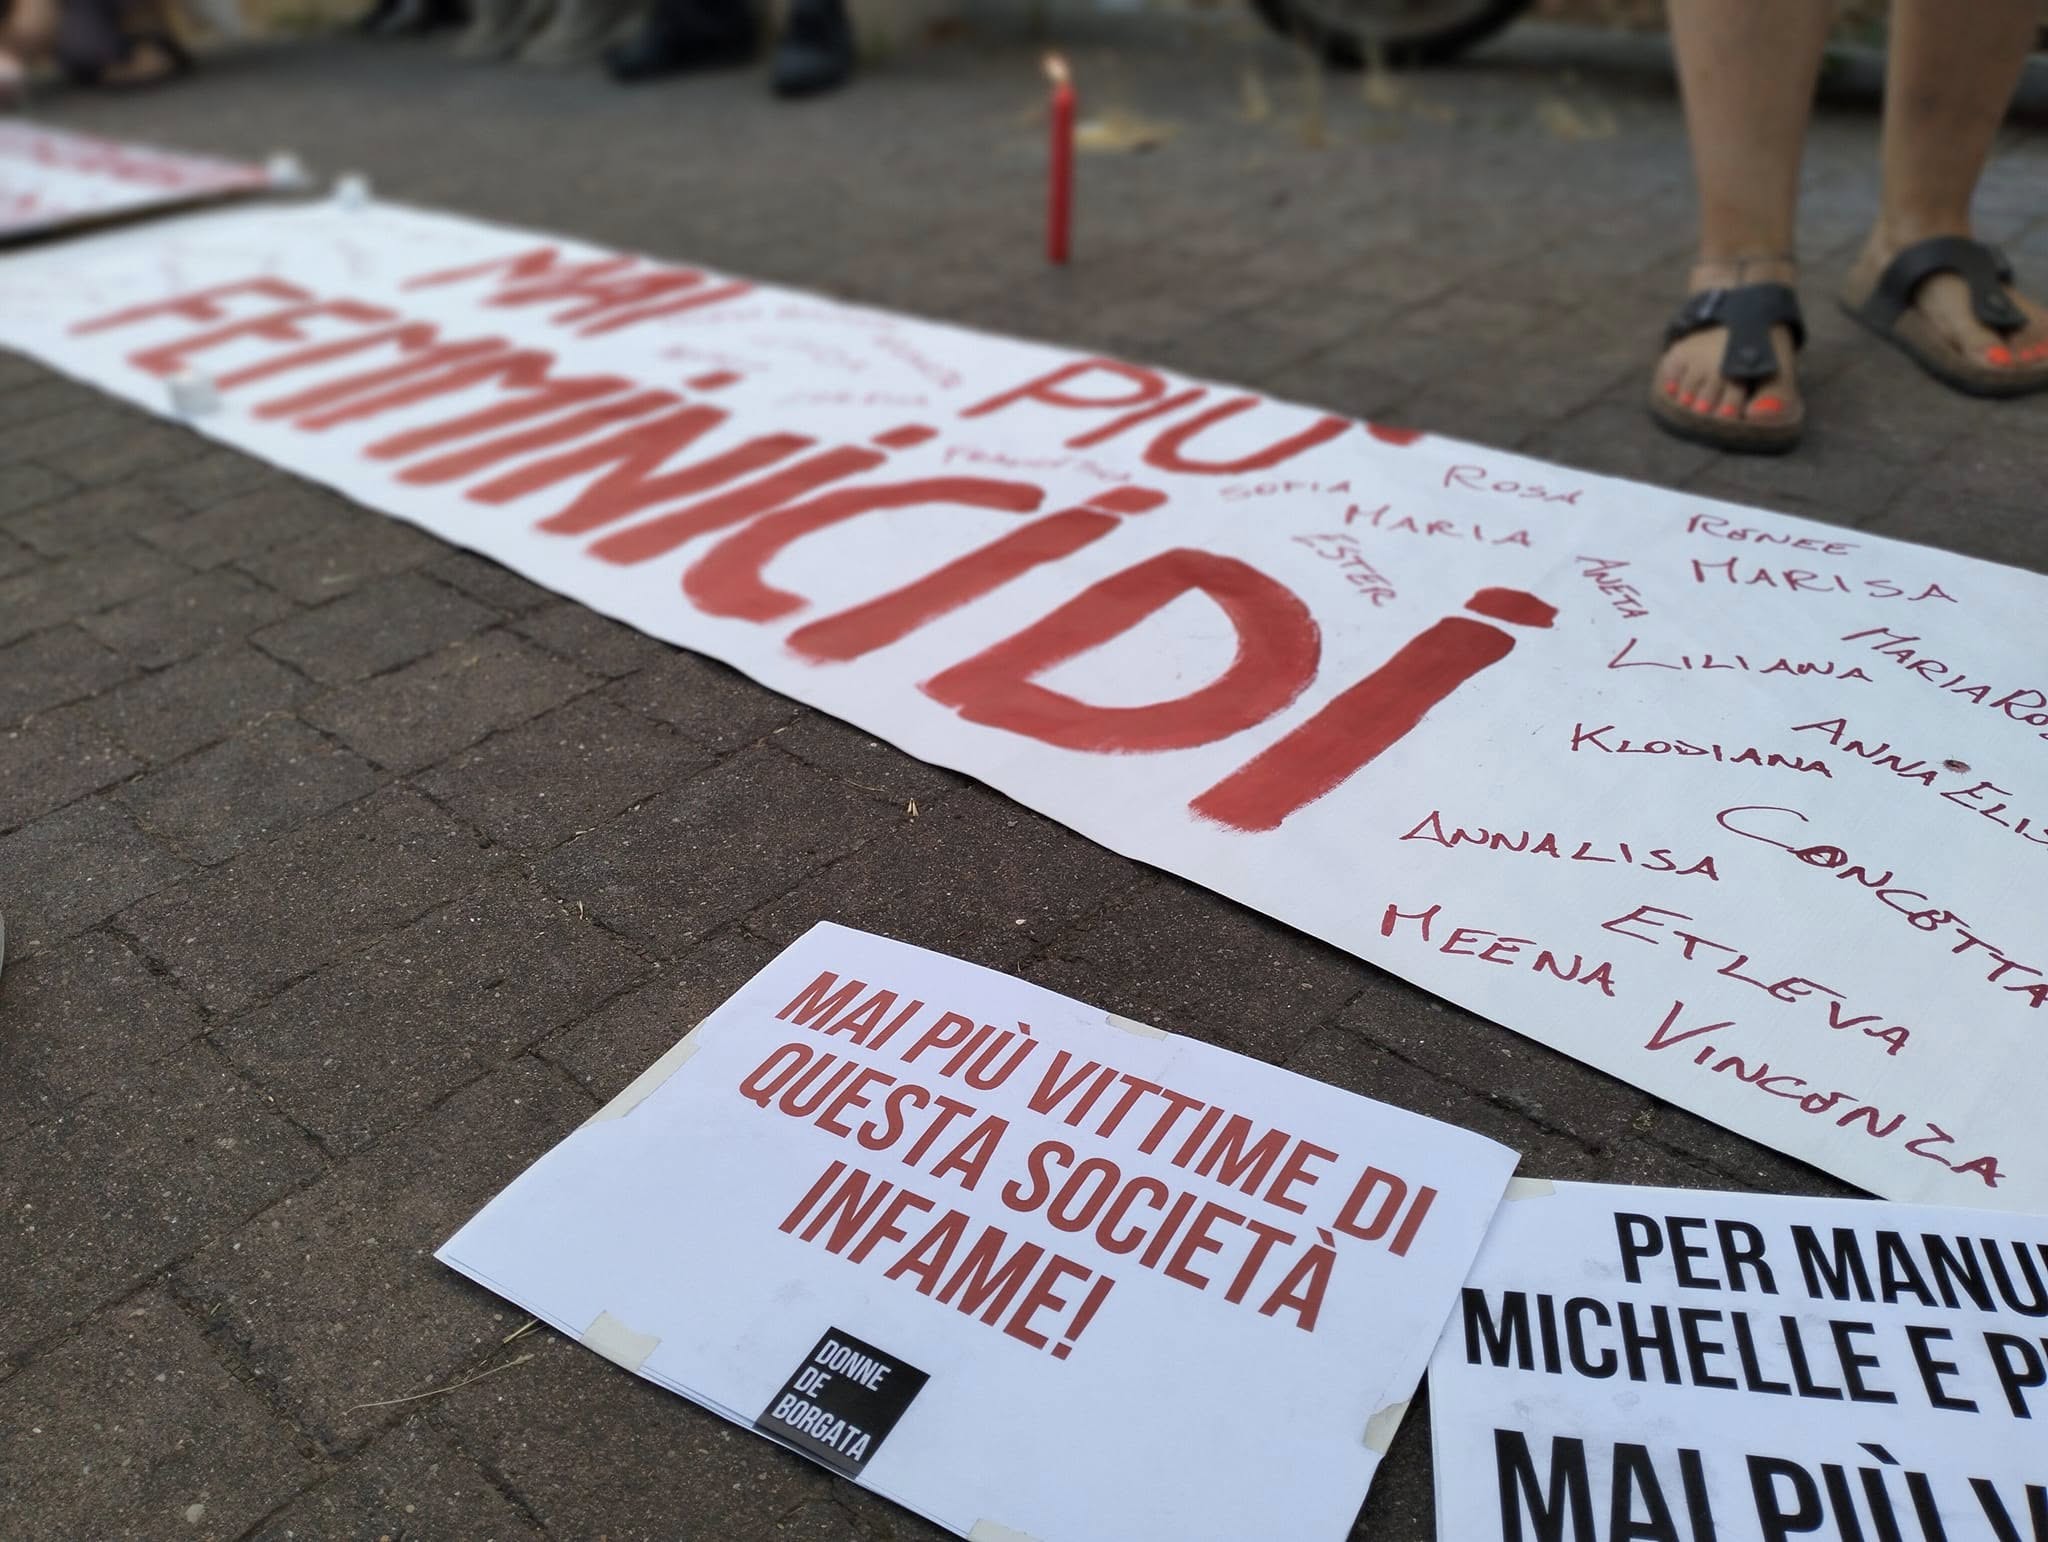 MAI PIÙ
FEMMINICIDI
SOFIA
ROSA
MARIA
ESTER
RONEE
MARISA
ANETA
LILIANA
MARIAROS
KLODIANA
ANNA ELIS
ANNALISA
CONCETTA
ETLEVA
MEENA
VINCENZA
MAI PIÙ VITTIME DI
QUESTA SOCIETÀ
INFAME!
DONNE
DE
BORGATA
PER MANU
MICHELLE E P
MAI PIÙ V